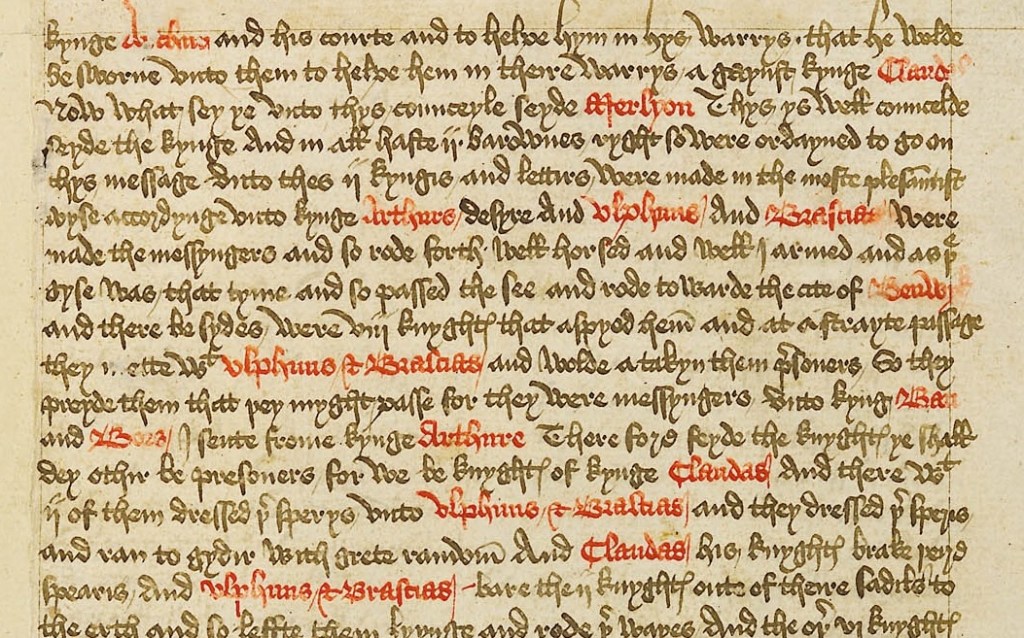 kynge Arthur and his courte and to helpe hym in hys warrys · that he wolde
be sworne vnto them to helpe hem in theire warrys a gaynst kynge Claudas
Now what sey ye vnto thys counceyle seyde Merlyon Thys ys well councelde
seyde the kynge And in all haste ij · barownes ryght so were ordayned to go on
thys message vnto thes ij kyngis and lettirs were made in the moste plesauntist
wyse accordynge vnto kynge Arthurs desyre And vlphuns And Brascias were
made the messyngers and so rode forth well horsed and well I armed and as þe
gyse was that tyme and so passed the see and rode to warde the cite of Benwyk
and there be sydes were viij knyghtes that aspyed hem and at a strayte passage
they mette wt vlphuns & Brascias and wolde a takyn them presoners So they
preyde them that þey myght passe for they were messyngers vnto kyng Ban
and Bors I sente frome kynge Arthure There fore seyde the knyghtes ye shall
dey othir be presoners for we be knyghtes of kynge Claudas And there wt
ij of them dressed þer sperys vnto vlphuns & Brascias and they dressed þer sperys
and ran to gydir with grete raundom And Claudas his knyghtes brake
spearis And vlphuns & Brascias bare the ij knyghtes oute of theire sadils to
the erth and so leffte them lyynge and rode þer wayes And the oþer vj knyghtes